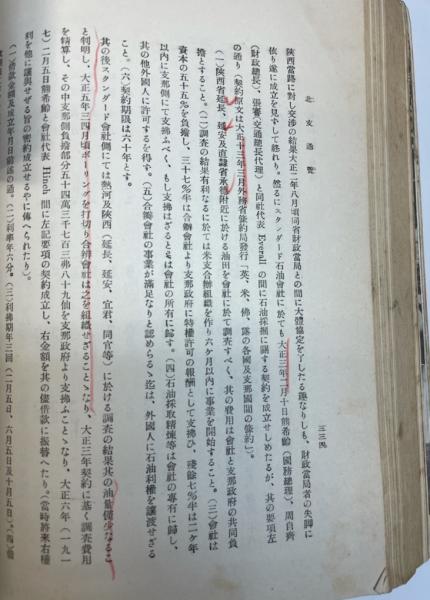 北支通覽
三三四
陝西當路に對し交涉の結果大正二年八月頃同省財政當局との間に大體協定を了したる趣なりしも、財政當局者の失脚に
依り遂に成立を見ずして終れり。然るにスタンダード石油會社に於ても大正三年二月十日熊希齡（國務總理）、周自齊
（財政總長）、張謇（交通總長代理）と同社代表 Everall の間に石油採掘に關する契約を成立せしめたるが、其の要項左
の通り（契約原文は大正十三年三月外務省條約局發行「英、米、佛、露の各國及支那國間の條約」）。
（一）陝西省延長、延安及直隸省承德附近に於ける油田を會社に於て調査すべく、其の費用は會社と支那政府の共同負
擔とすること。（二）調査の結果有利なるに於ては米支合辦組織を作り六ケ月以內に事業を開始すること。（三）會社は
資本の五五％を負擔し、三七％半は合辦會社より支那政府に特權許可の報酬として支拂ひ、殘餘七％半は二ケ年
以內に支那側にて支拂ふべく、もし支拂はざるときは會社の所有に歸す。（四）石油採取精煉等は會社の專有に歸し、
其の他外國人に許可するを得ず。（五）合辦會社の事業が滿足なりと認めらるゝ迄は、外國人に石油利權を讓渡せざる
こと。（六）契約期限は六十年とす。
其の後スタンダード會社側にては熱河及陝西（延長、延安、宜君、同官等）に於ける調査の結果其の油量僅少なるこ
と判明し、大正五年三四月頃ボーリングを打切り合辦會社は之を組織せざることゝなり、大正三年契約に基く調査費用
を精算し、その中支那側負擔部分五十四萬三千七百三弗八十九仙を支那政府より支拂ふことゝなり、大正六年（一九一
七）二月五日熊希齡と會社代表 間に左記要項の契約成立し、右金額を其の儘借款に振替へたり。（當時將來右權
利を他に讓與せざる旨の密約成立せるやに傳へられたり）。
（一）借款金額及成立年月日前述の通。（二）利率年六分。（三）利拂期年三回（二月五日、六月五日及十月五日）。（四）償